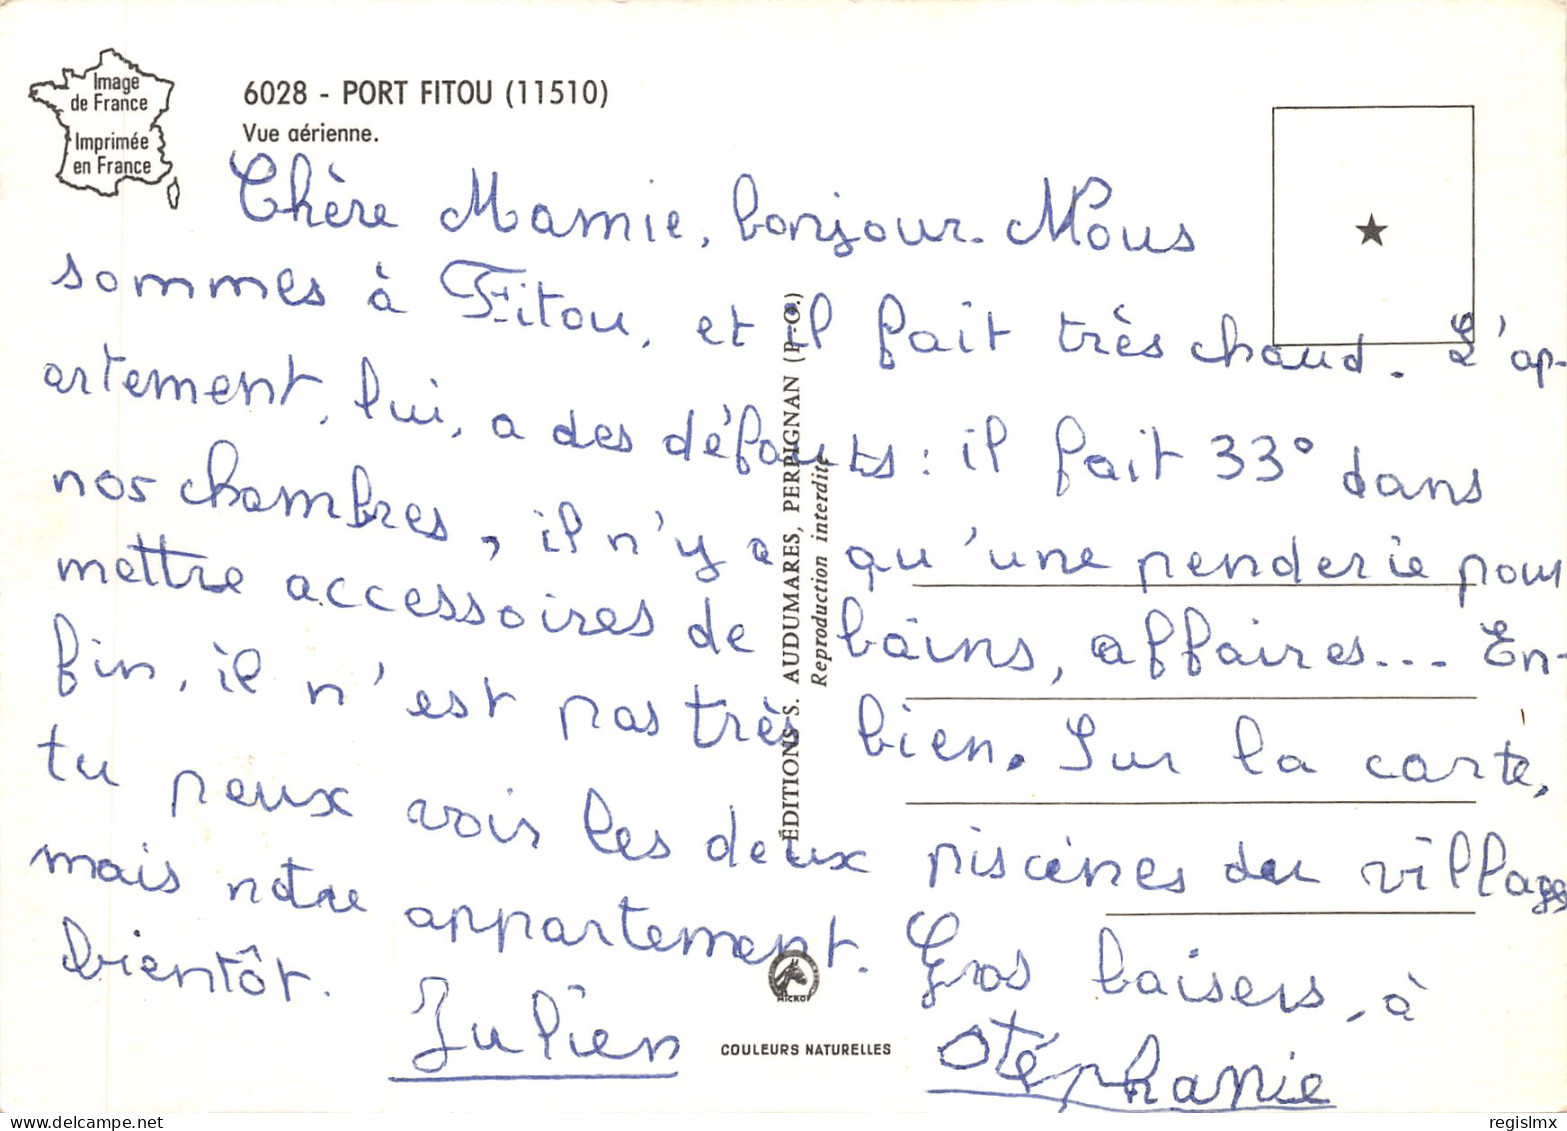 Image
de France
Imprimée
en France
6028 - PORT FITOU (11510)
Vue aérienne.
Chère Mamie, bonjour. Nous
sommes à Fitou, et il fait très chaud. L'ap-
artement, lui, a des défauts : il fait 33° dans
nos chambres, il n'y a qu'une penderie pour
mettre accessoires de bains, affaires... En-
fin, il n'est pas très bien. Sur la carte,
tu peux voir les deux piscines du village
mais notre appartement. Gros baisers, à
bientôt.
Julien
Stéphanie
ÉDITIONS S. AUDUMARES, PERPIGNAN (P.-O.)
Reproduction interdite
COULEURS NATURELLES
delcampe.net
regislmx